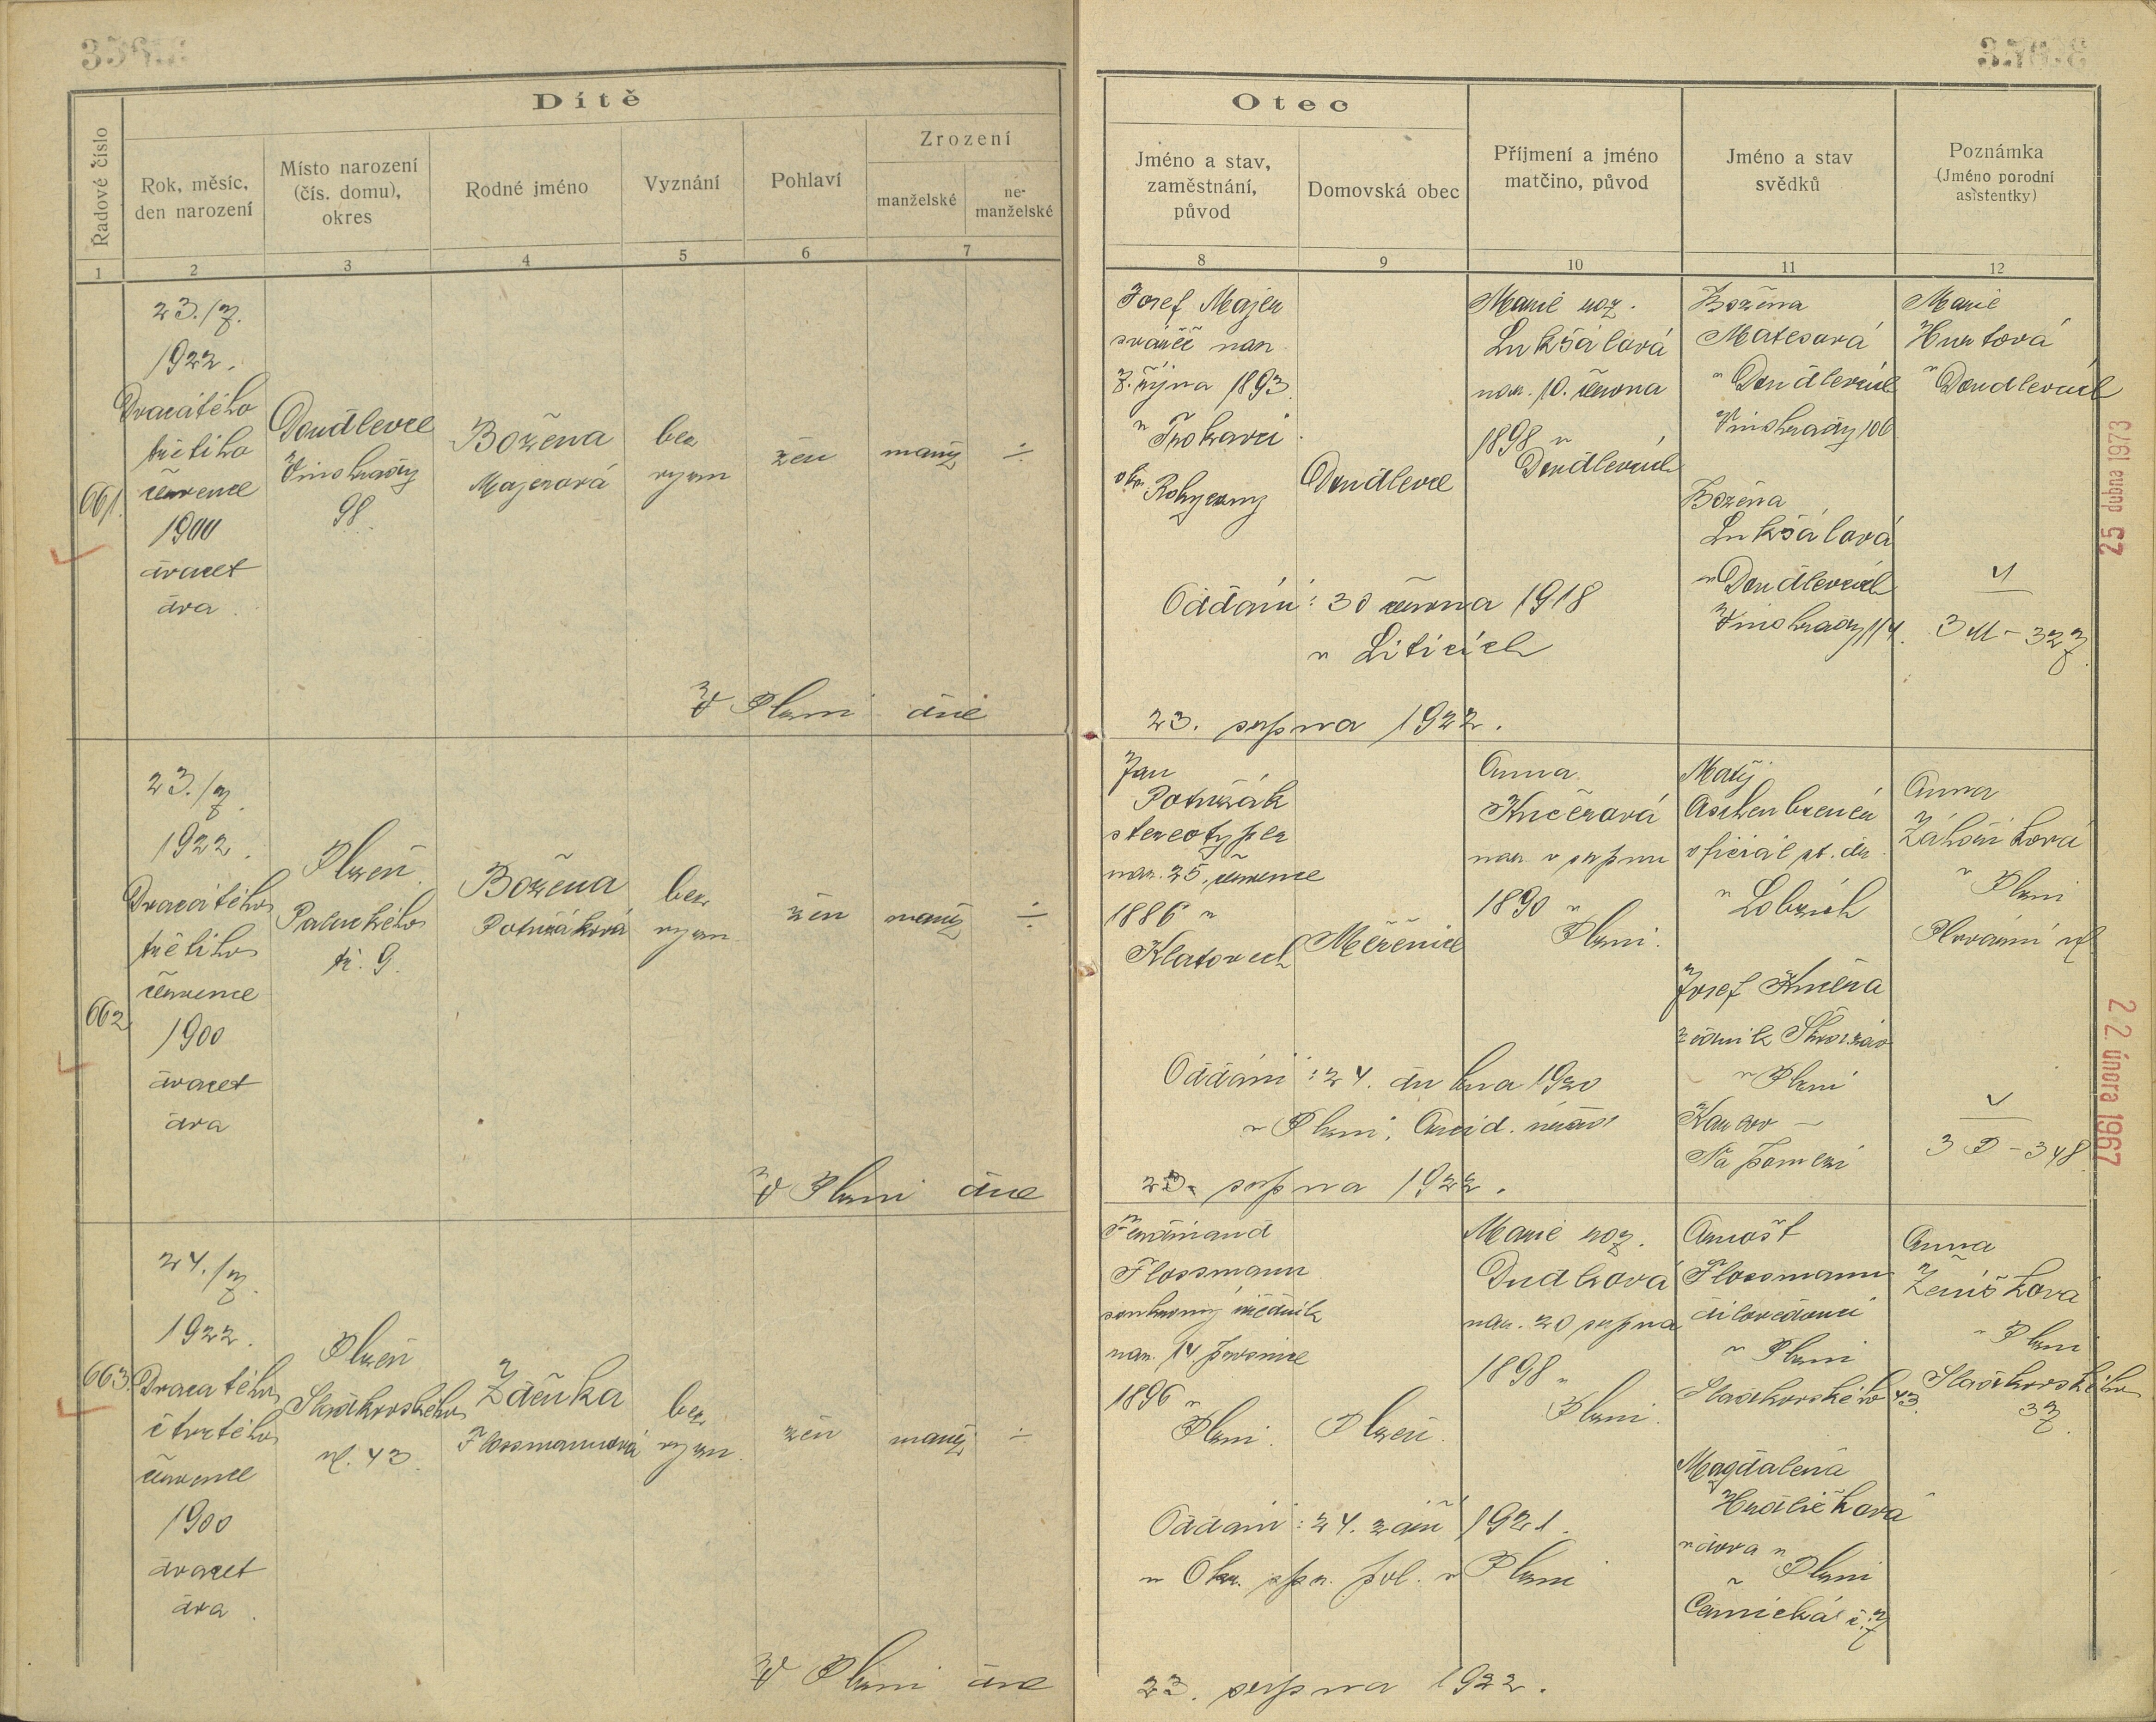 Dítě
Řadové číslo
Rok, měsíc,
den narození
Místo narození
(čís. domu),
okres
Rodné jméno
Vyznání
Pohlaví
Zrození
manželské
ne-
manželské
1
2
3
4
5
6
7
Otec
Jméno a stav,
zaměstnání,
původ
Domovská obec
Příjmení a jméno
matčino, původ
Jméno a stav
svědků
Poznámka
(Jméno porodní
asistentky)
8
9
10
11
12
661.
23./7.
1922.
Dvacátého
třetího
července
1900
dvacet
dva.
Doudlevce
Vinohrady
98.
Božena
Majerová
bez
vyzn
žen
manž
÷
Josef Majer
svářeč nar.
7. října 1893
v
okr. Rokycany
Doudlevce
Marie roz.
Lukšálová
nar. 10. června
1898 v
Doudlevcích
Božena
Matesová
v Doudlevcích
Vinohrady 106
Božena
Lukšálová
v Doudlevcích
Vinohrady 114.
Marie
Hurtová
v Doudlevcích
3 M - 327
Oddáni: 30 června 1918
v Liticích
V Plzni dne
23. srpna 1922.
25 dubna 1973
662
23./7.
1922.
Dvacátého
třetího
července
1900
dvacet
dva
Plzeň
Palackého
tř. 9.
Božena
Potužáková
bez
vyzn
žen
manž
÷
Jan
Potužák
stereotyper
nar. 25. července
1886 v
Klatovech
Měčenice
Anna
Kučerová
nar. v srpnu
1890 v
Plzni.
Matěj
Aschenbrener
oficiál st. dr.
v Lobzích
Josef Kučera
zedník Škod. záv
v Plzni
Karlov -
Na pomezí
Anna
Záhoříková
v Plzni
3 P - 348
Oddáni: 24. dubna 1920
v Plzni,
V Plzni dne
23. srpna 1922.
22. února 1967
663.
24./7.
1922.
Dvacátého
čtvrtého
července
1900
dvacet
dva.
Plzeň
Sladkovského
ul. 43.
Zdeňka
Flossmannová
bez
vyzn.
žen
manž
÷
Ferdinand
Flossmann
soukromý úředník
nar. 14 prosince
1896 v
Plzni.
Plzeň.
Marie roz.
Dudková
nar. 20 srpna
1898 v
Plzni.
Arnošt
Flossmann
dílovedoucí
v Plzni
Sladkovského 43.
Magdalena
Hrdličková
vdova v
Plzni
č. 7
Anna
Ženíšková
v Plzni
Sladkovského
37.
Oddáni: 24. září 1921.
v Okr. spr. pol. v Plzni
V Plzni dne
23. srpna 1922.